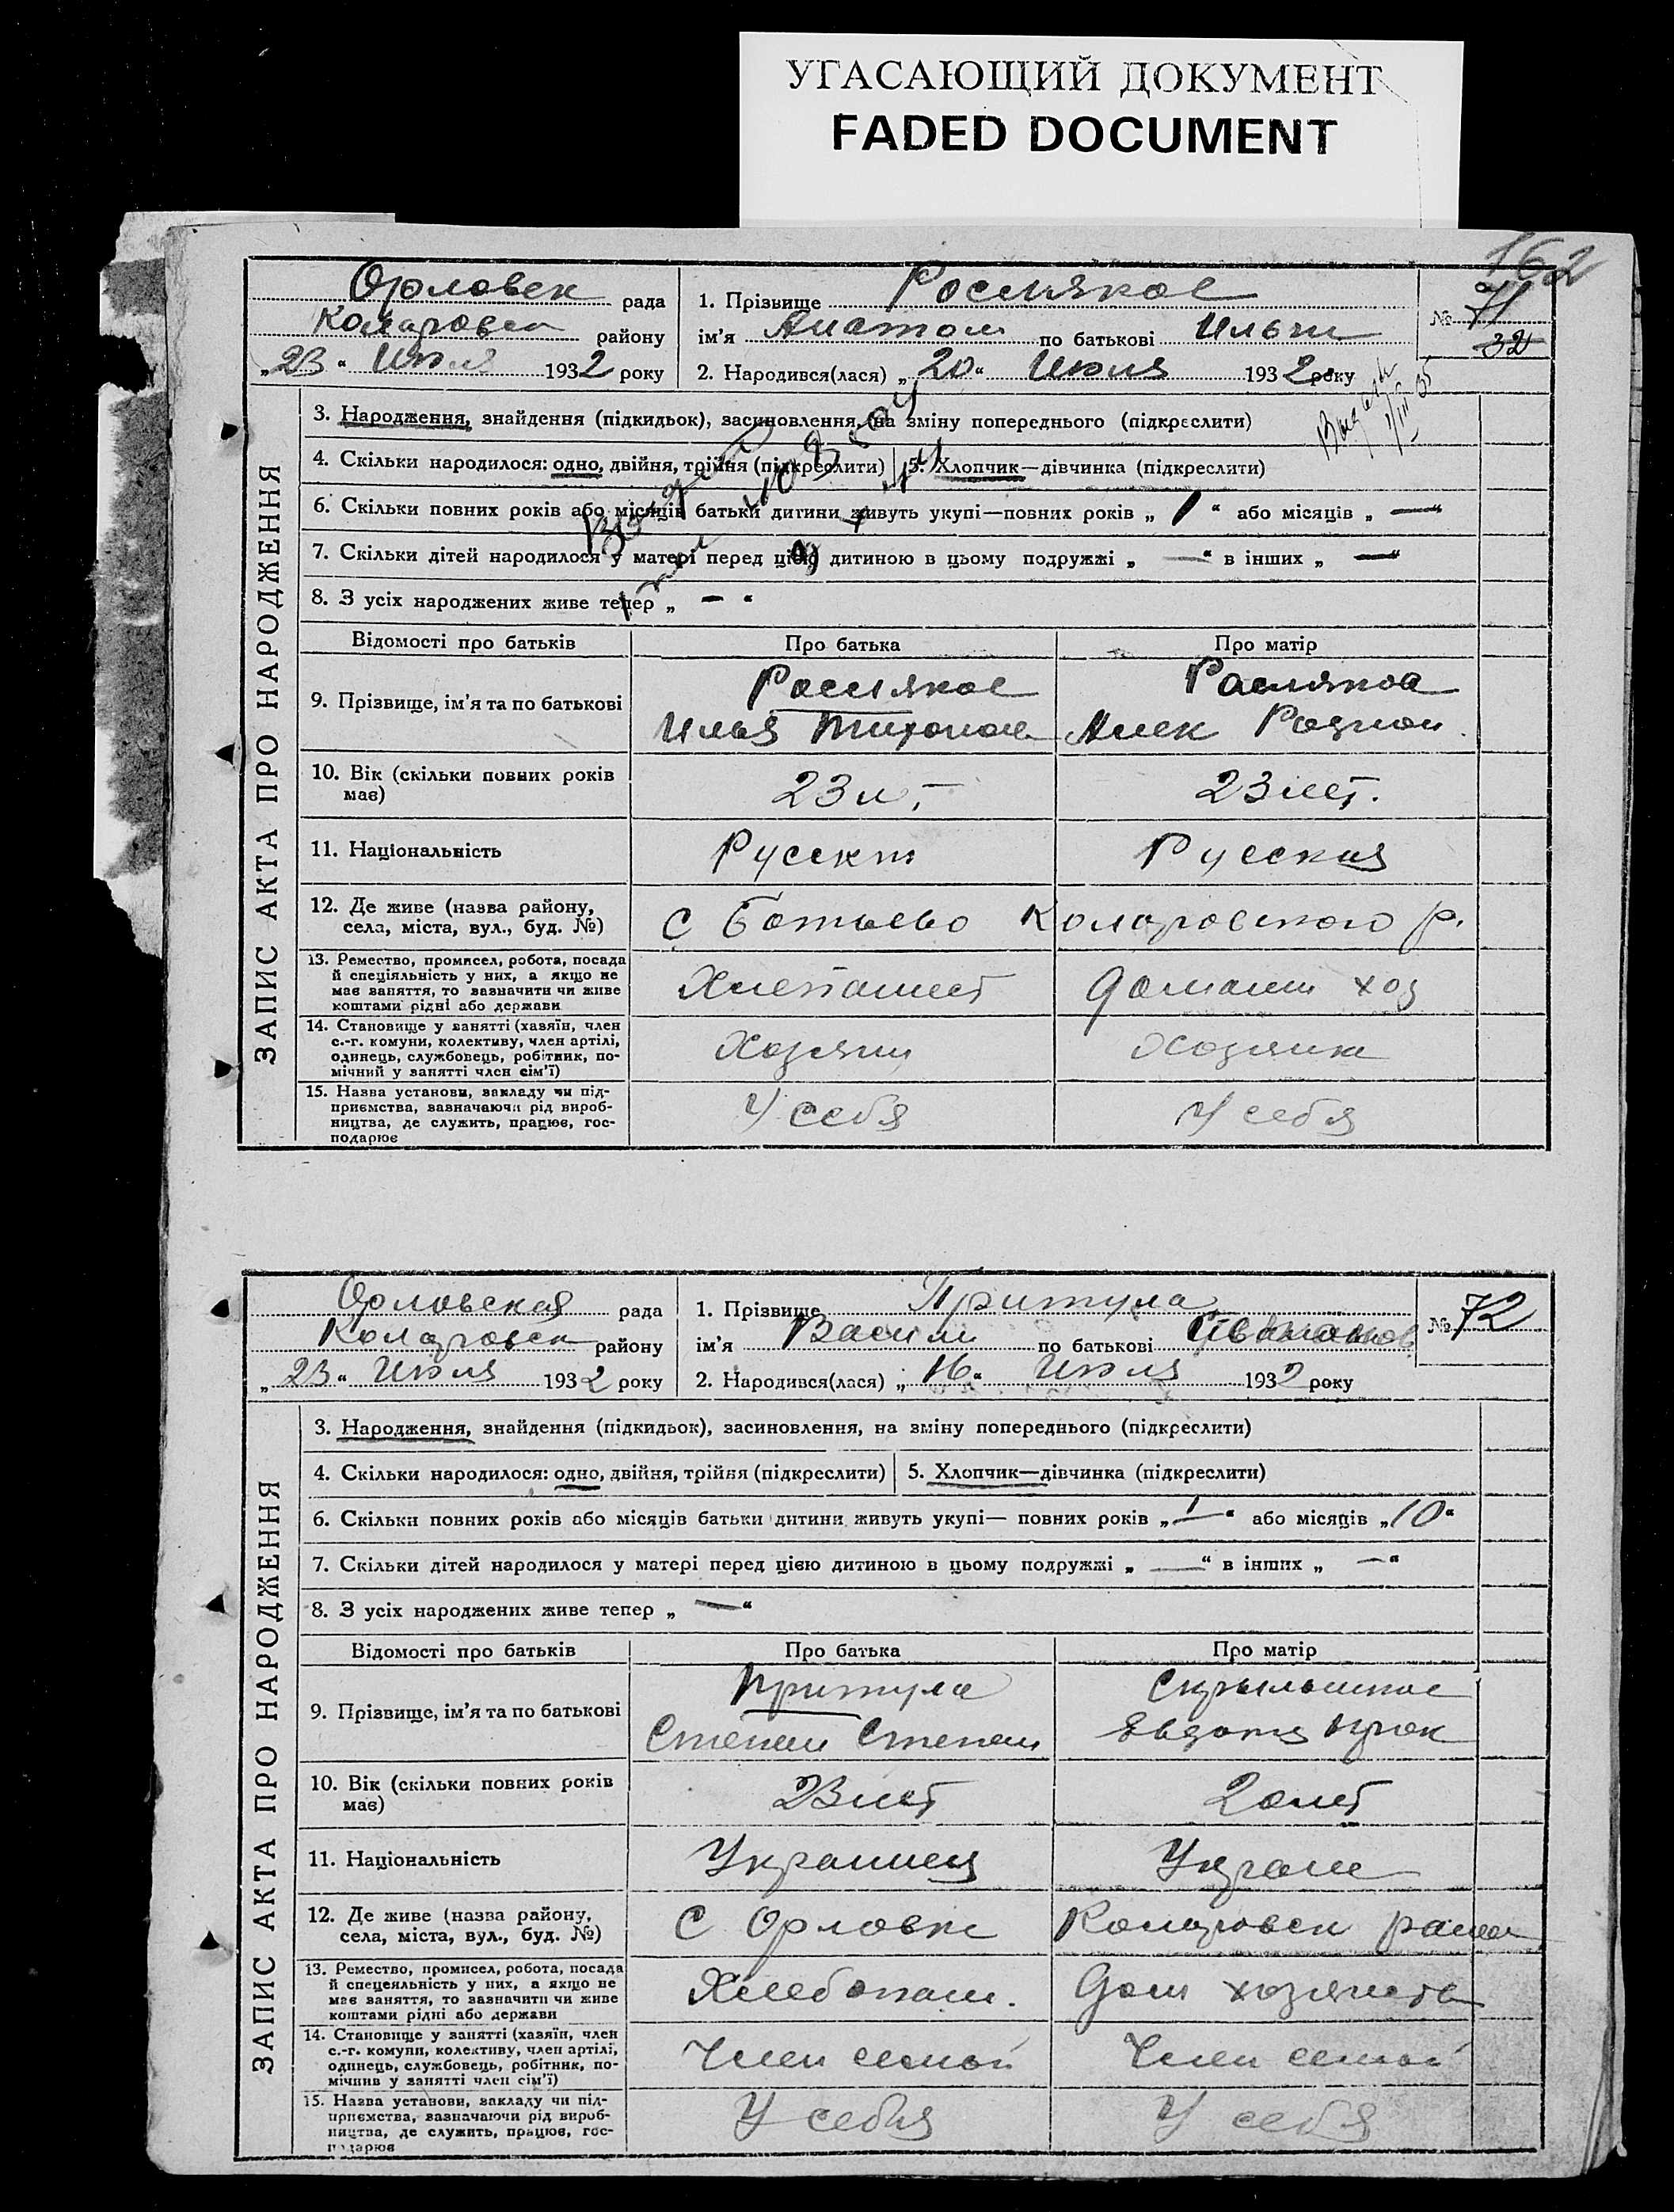 УГАСАЮЩИЙ ДОКУМЕНТ
FADED DOCUMENT
162
Орловск рада
Коларовск району
„23“ Июля 1932 року
1. Прізвище Росляков
ім'я Анатол по батькові Ильич
2. Народився(лася) „20“ Июля 1932 року
№ 71
32
3. Народження, знайдення (підкидьок), засиновлення, на зміну попереднього (підкреслити)
4. Скільки народилося: одно, двійня, трійня (підкреслити)
5. Хлопчик—дівчинка (підкреслити)
6. Скільки повних років або місяців батьки дитини живуть укупі—повних років „1“ або місяців „—“
7. Скільки дітей народилося у матері перед цією дитиною в цьому подружжі „—“ в інших „—“
8. З усіх народжених живе тепер „—“
ЗАПИС АКТА ПРО НАРОДЖЕННЯ
Відомості про батьків Про батька Про матір
9. Прізвище, ім'я та по батькові
Росляков
Илья Тихонов
Рослякова
Алек Родион.
10. Вік (скільки повних років має)
23 л.
23 лет.
11. Національність
Русский
Русская
12. Де живе (назва району,
села, міста, вул., буд. №)
С Ботьево Коларовского р.
13. Ремество, промисел, робота, посада
й спеціяльність у них, а якщо не
має заняття, то зазначити чи живе
коштами рідні або держави
Хлебопашест
Домашн хоз
14. Становище у занятті (хазяїн, член
с.-г. комуни, колективу, член артілі,
одинець, службовець, робітник, по-
мічний у занятті член сім'ї)
Хозяин
Хозяика
15. Назва установи, закладу чи під-
приємства, зазначаючи рід вироб-
ництва, де служить, працює, гос-
подарює
У себя
У себя
Орловская рада
Коларовск району
„23“ Июля 1932 року
1. Прізвище Притула
ім'я Васили по батькові
2. Народився(лася) „16“ Июля 1932 року
№ 72
3. Народження, знайдення (підкидьок), засиновлення, на зміну попереднього (підкреслити)
4. Скільки народилося: одно, двійня, трійня (підкреслити)
5. Хлопчик—дівчинка (підкреслити)
6. Скільки повних років або місяців батьки дитини живуть укупі— повних років „1“ або місяців „10“
7. Скільки дітей народилося у матері перед цією дитиною в цьому подружжі „—“ в інших „—“
8. З усіх народжених живе тепер „—“
ЗАПИС АКТА ПРО НАРОДЖЕННЯ
Відомості про батьків Про батька Про матір
9. Прізвище, ім'я та по батькові
Притула
Степан Степан
Евдоки Прок
10. Вік (скільки повних років має)
23 лет
20 лет
11. Національність
Украинец
Украин
12. Де живе (назва району,
села, міста, вул., буд. №)
С Орловка Коларовск район
13. Ремество, промисел, робота, посада
й спецеяльність у них, а якщо не
має заняття, то зазначити чи живе
коштами рідні або держави
Хлебопаш.
Дом хозяйство
14. Становище у занятті (хазяїн, член
с.-г. комуни, колективу, член артілі,
одинець, службовець, робітник, по-
мічнив у занятті член сім'ї)
Член семьи
Член семьи
15. Назва установи, закладу чи під-
приємства, зазначаючи рід вироб-
ництва, де служить, працює, гос-
подарює
У себя
У себя